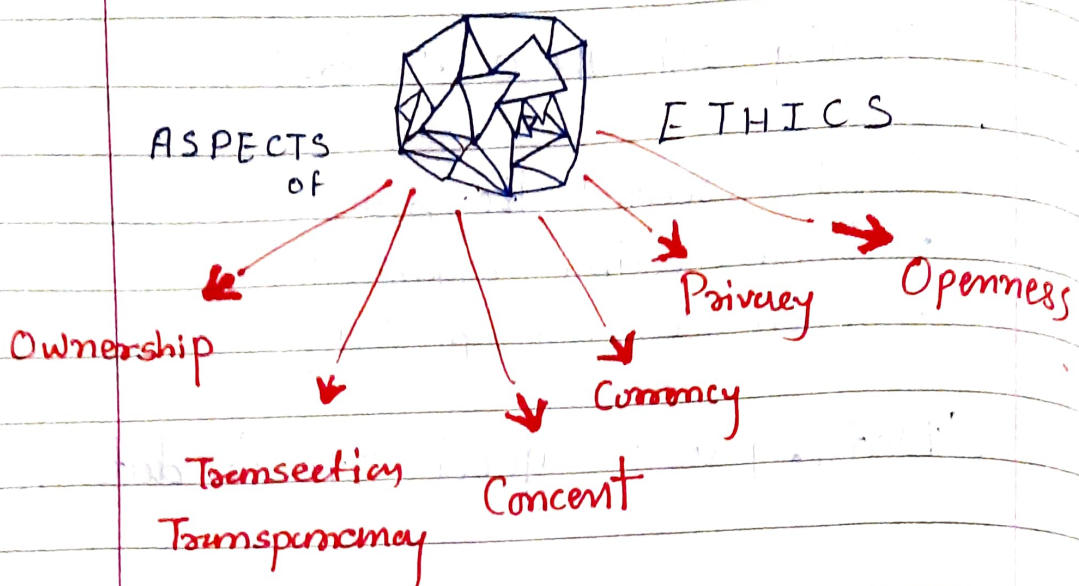 ASPECTS
of
ETHICS
Ownership
Transaction
Transparency
Concent
Currency
Privacy
Openness